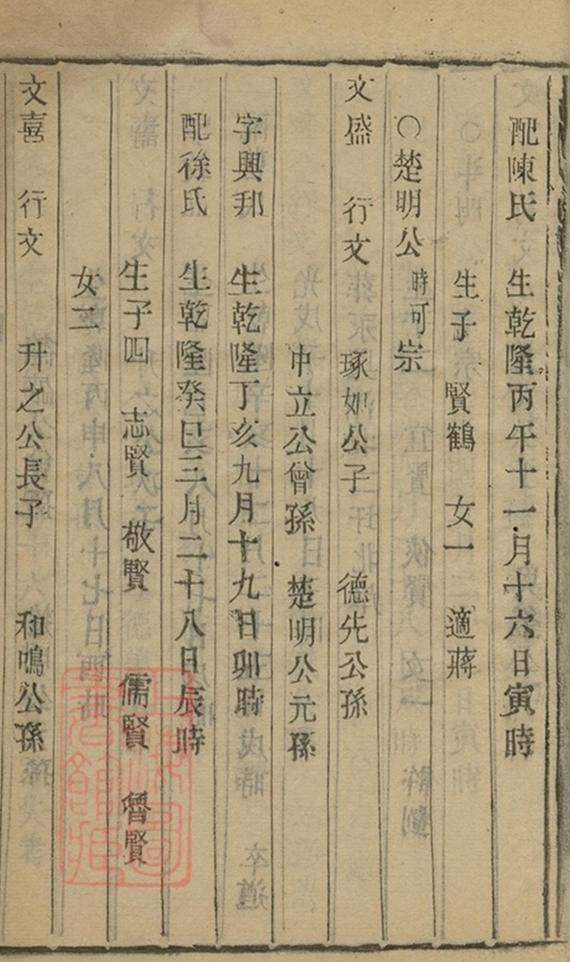 配陳氏 生乾隆丙午十一月十六日寅時
生子 賢鶴 女一 適蔣
○楚明公時可宗
文盛 行文 琢如公子 德先公孫
中立公曾孫 楚明公元孫
字興邦 生乾隆丁亥九月十九日卯時
配徐氏 生乾隆癸巳三月二十八日辰時
生子四 志賢 敬賢 儒賢 魯賢
女二
文喜 行文 升之公長子 和鳴公孫